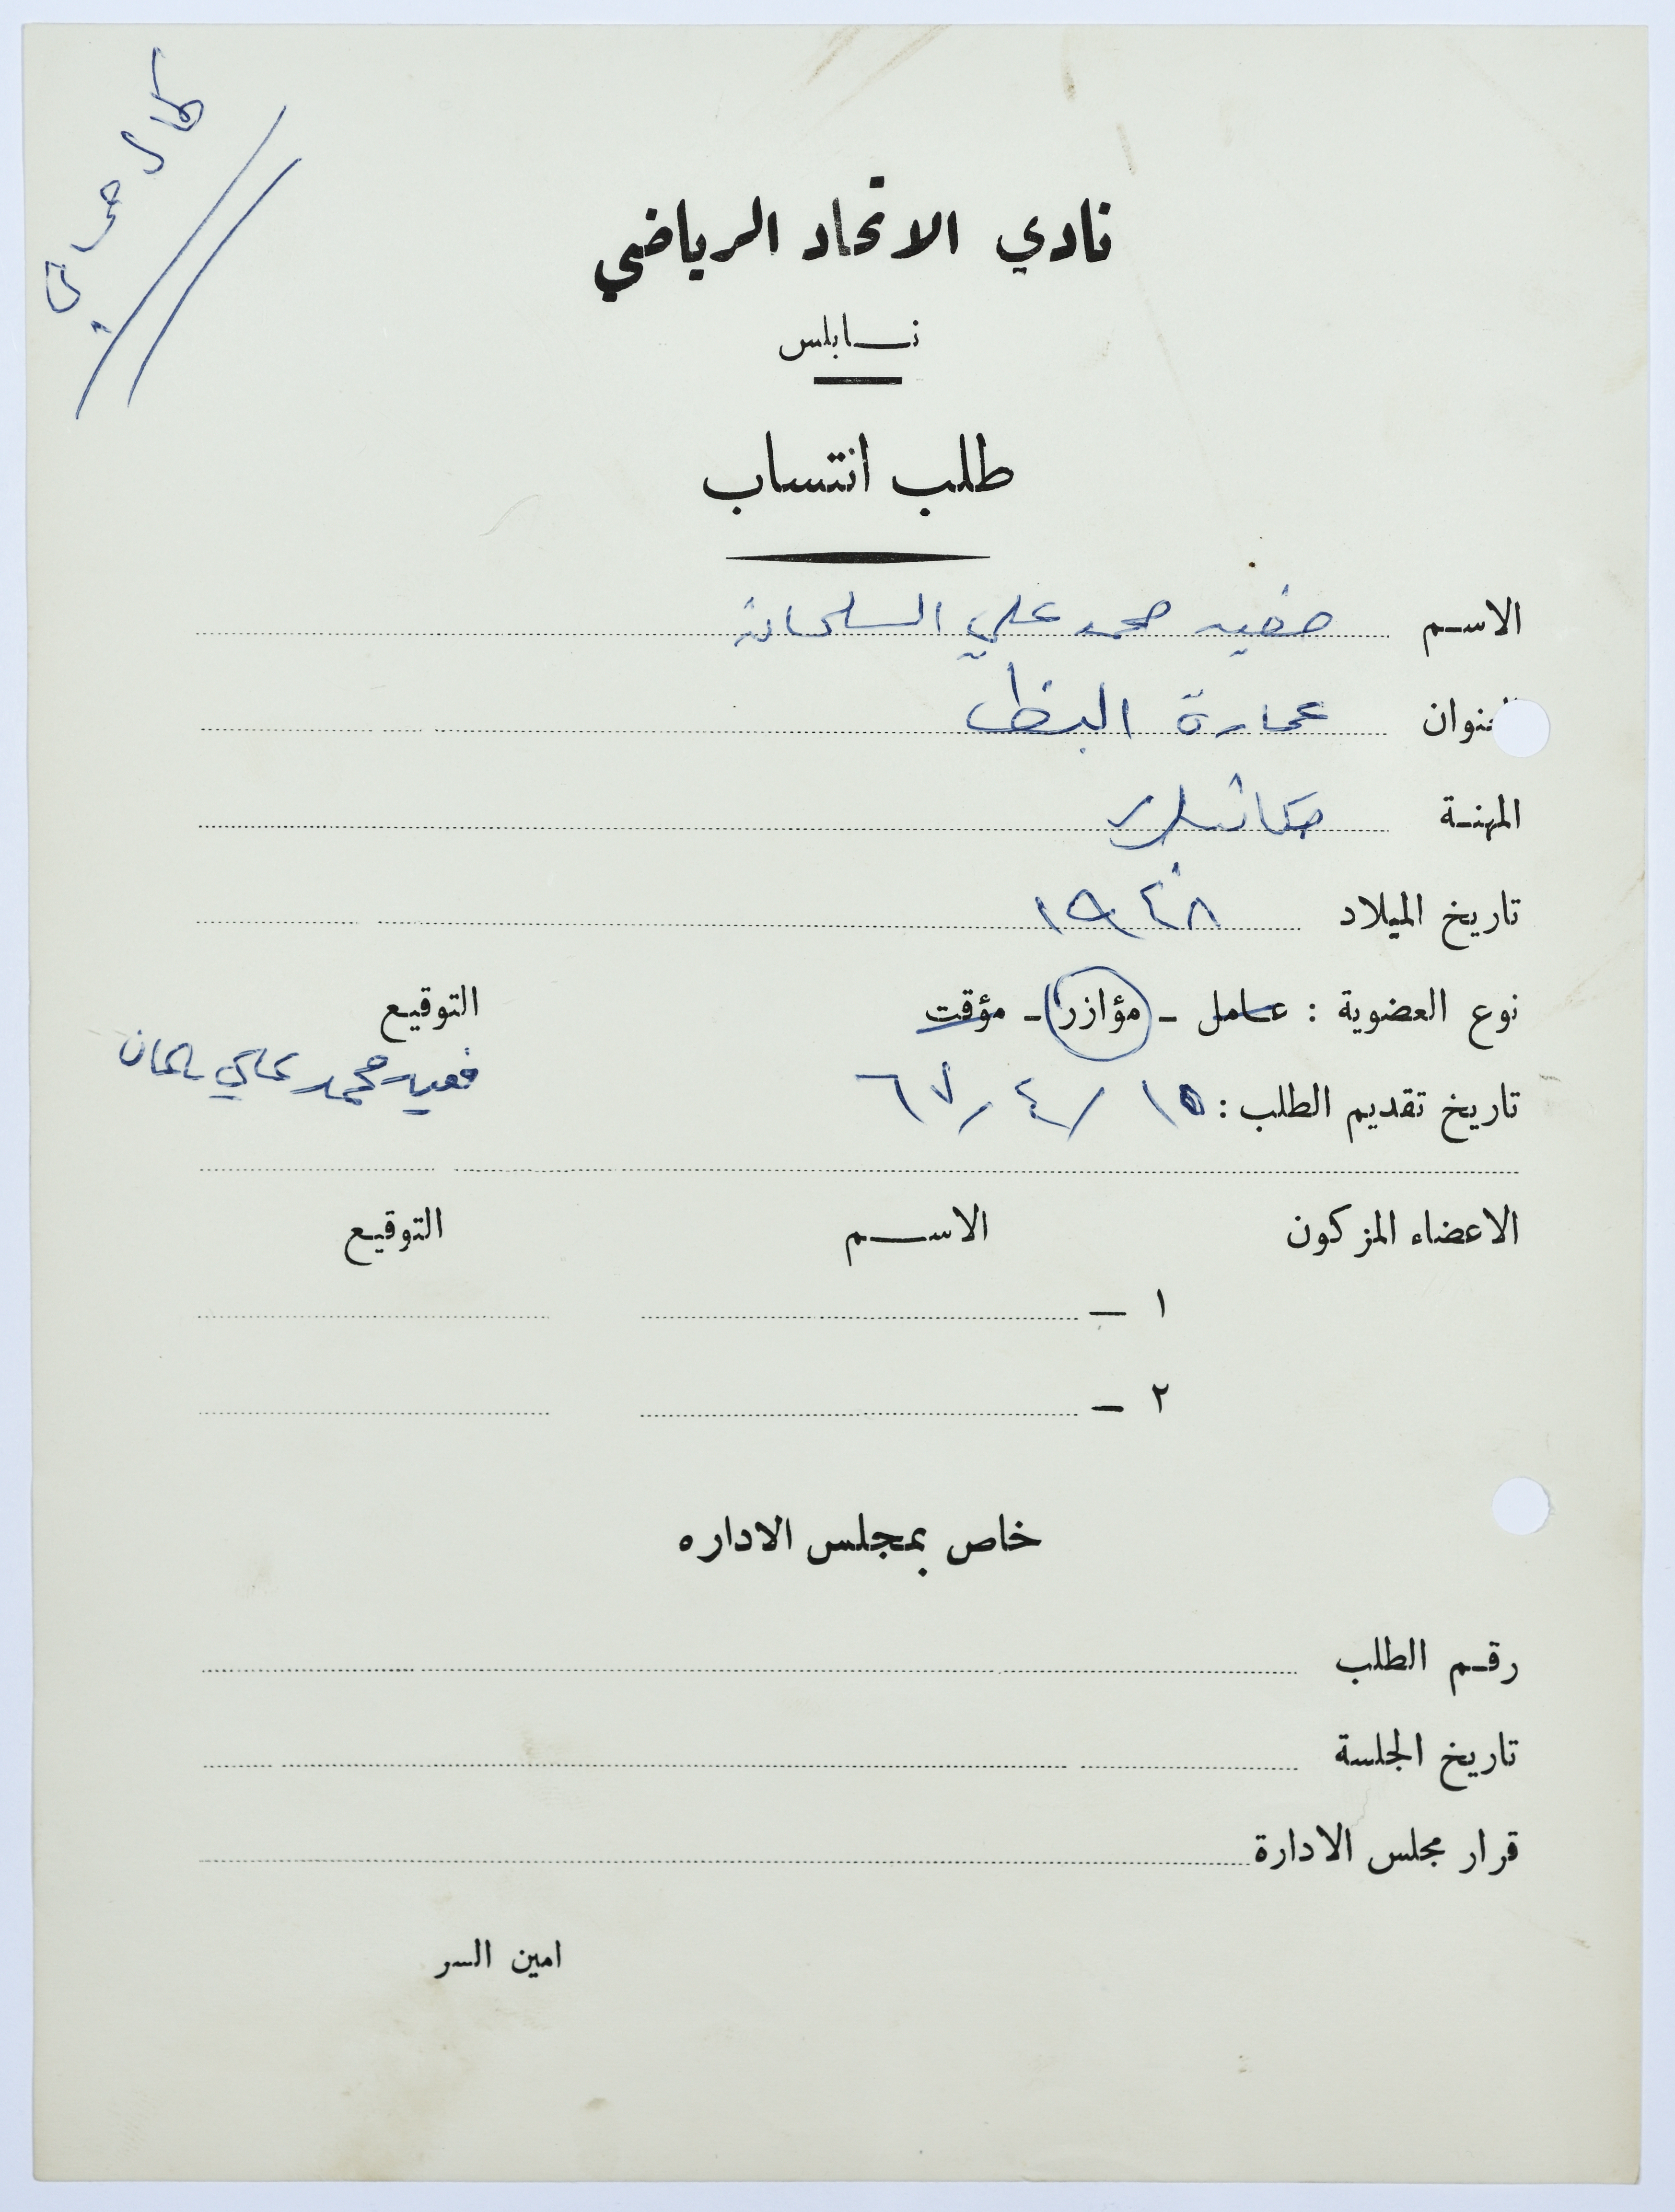 كمال حرب
نادي الاتحاد الرياضي
نابلس
طلب انتساب
الاسم محمد علي
العنوان عمارة
المهنة
تاريخ الميلاد ١٩٤٨
نوع العضوية : عامل - مؤازر - مؤقت
التوقيع
تاريخ تقديم الطلب : ١٥ / ٤ / ٦٧
محمد علي
الاعضاء المزكون الاسم التوقيع
١ -
٢ -
خاص بمجلس الاداره
رقم الطلب
تاريخ الجلسة
قرار مجلس الادارة
امين السر